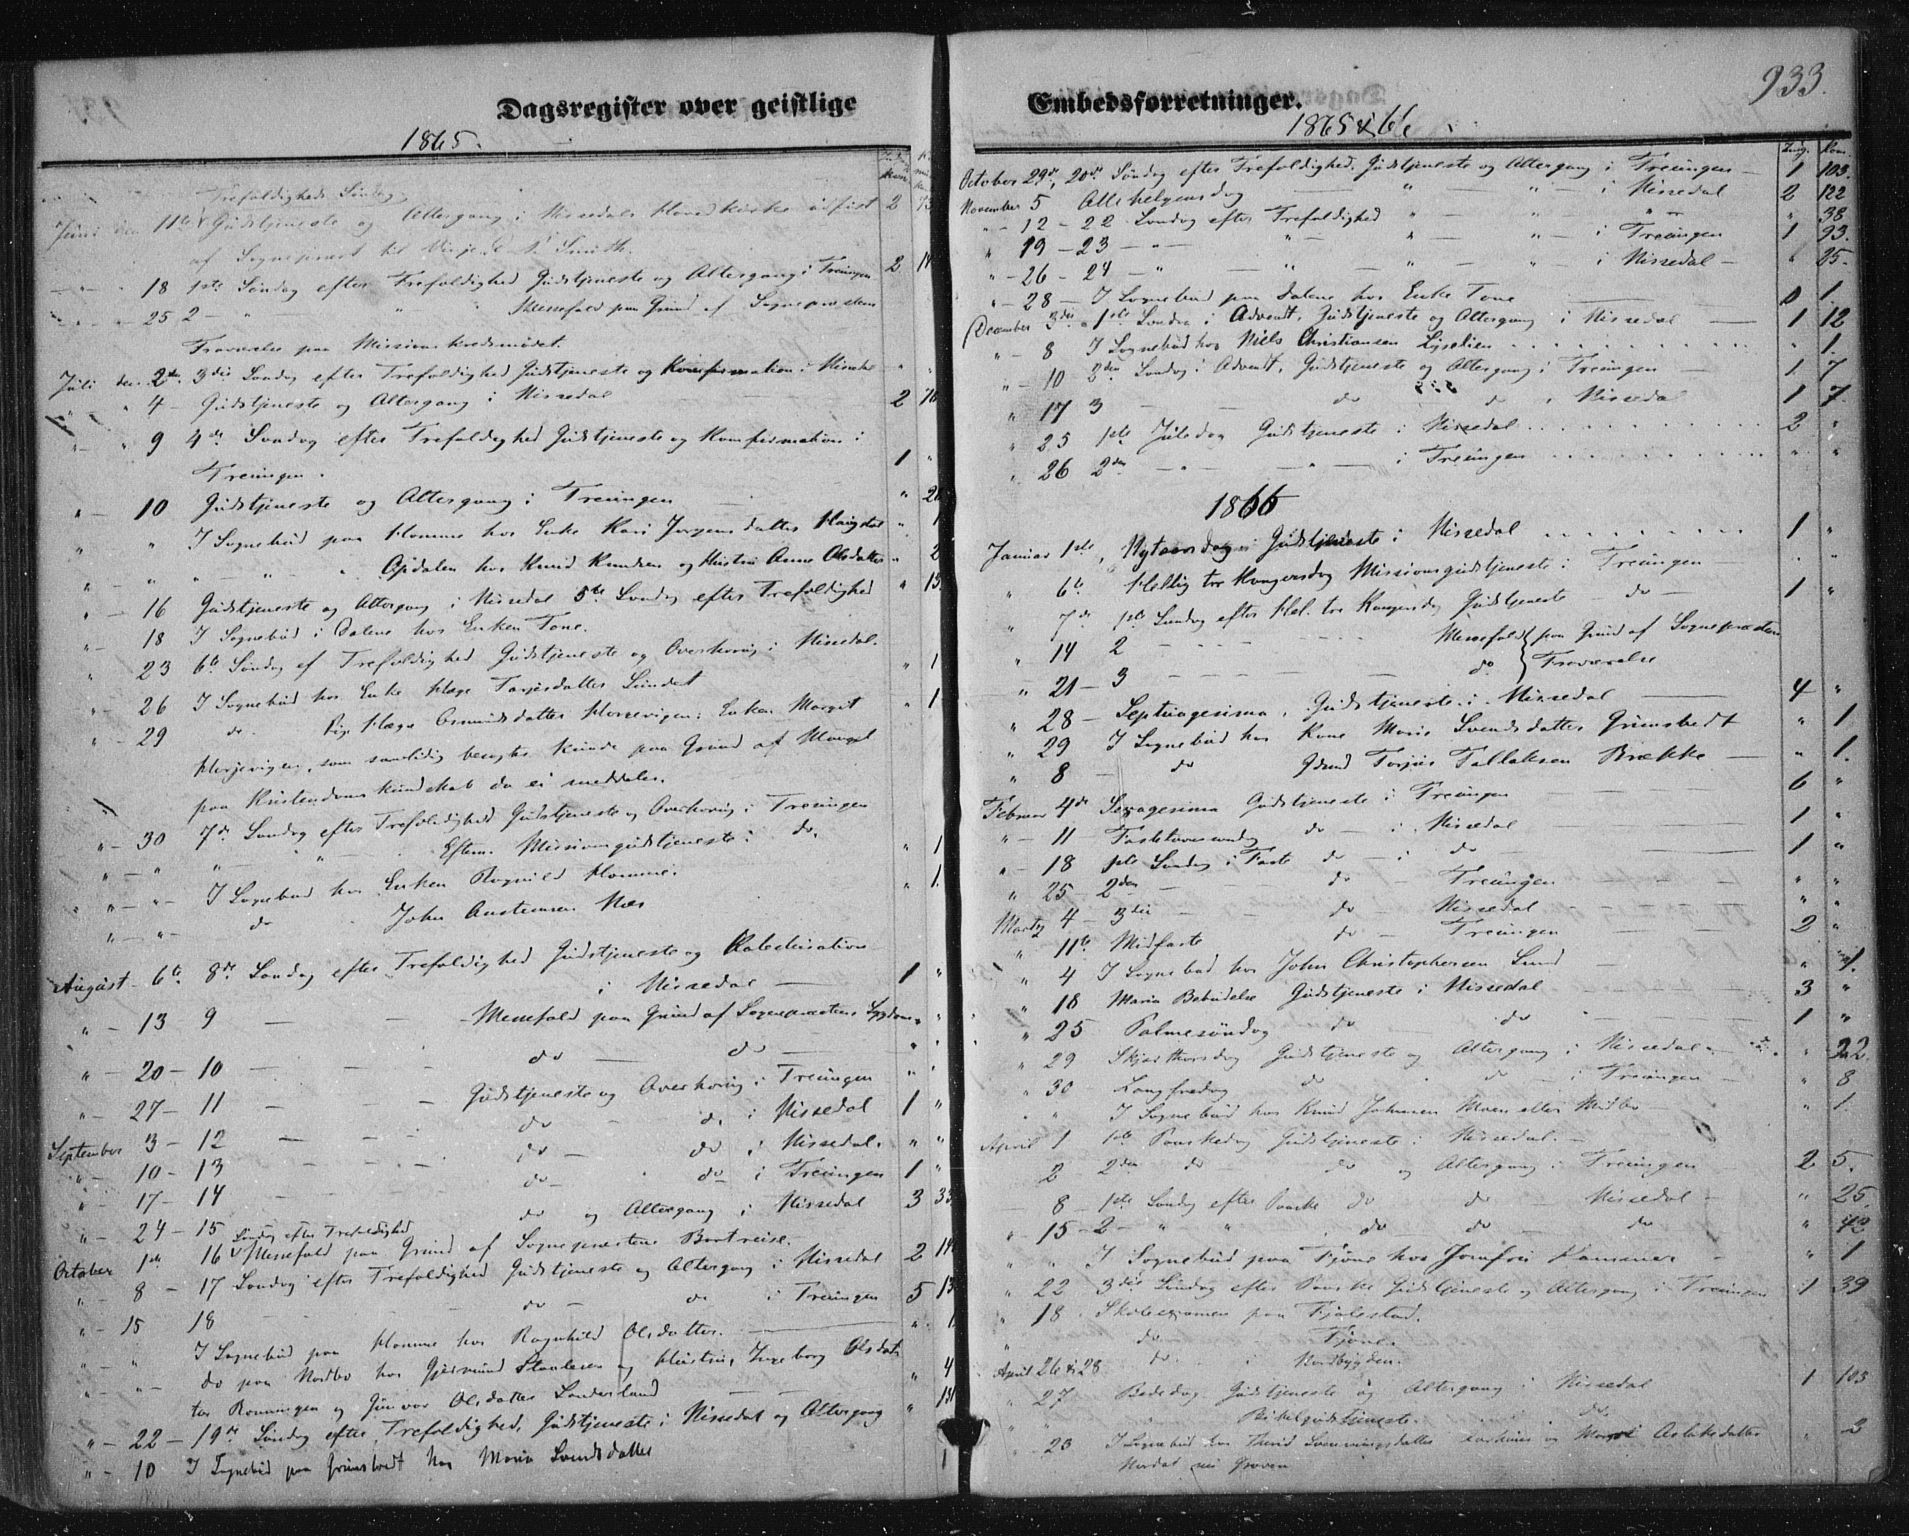 Dagsregister over geistlige
1865.
Trefoldigheds Søndag
Juni den 11te Gudstjeneste og Altergang i Nissedals Hovedkirke udført 2
af Sognepræst til Vinje Smith.
" - " 18 1ste Søndag efter Trefoldighed Gudstjeneste og Altergang i Treungen 2
" - " 25 2 - " " Messefald paa Grund af Sognepræstens
Fraværelse paa Missionskredsmødet.
Juli den 2den 3die Søndag efter Trefoldighed Gudstjeneste og Konfirmation i Nissedal " "
" " 4 - Gudstjeneste og Altergang i Nissedal 2
" " 9 4de Søndag efter Trefoldighed Gudstjeneste og Konfirmation i
Treungen. 1 "
" - 10 Gudstjeneste og Altergang i Treungen "
" " I Sognebud paa Homme hos Enke Kari Jørgensdatter Haugdal " 1
" - " " - " - " Ajsdalen hos Knud Knudsen og Hustru Anne Olsdatter " 2
" - 16 Gudstjeneste og Altergang i Nissedal 5te Søndag efter Trefoldighed " 15
" - 18 I Sognebud i Dalene hos Enken Tone.
" - 23 6te Søndag ef Trefoldighed Gudstjeneste og Overhøring i Nissedal.
" - 26 I Sognebud hos Enke Hæge Torjusdatter Sundet " 1
" - 29 do. Pige Hæge Osmundsdatter Horjevigen; Enken Margit " 1
Horjevigen, som samtidig begjærte kunde paa Grund af Mangel
paa Kristendomskundskab do ei meddeles.
" - 30 7de Søndag efter Trefoldighed Gudstjeneste og Overhøring i Treungen
" - " " - " - Eftm. Missionsgudstjeneste i do.
" - " - I Sognebud hos Enken Ragnild Homme. " 1
" - " - do John Austensen Næs " 1.
August 6te 8de Søndag efter Trefoldighed Gudstjeneste og Katechisation
i Nissedal 1 "
" - 13 9 - - Messefald paa Grund af Sognepræstens Sygdom " "
" - 20 - 10 - - do - do - " "
" - 27 - 11 - - Gudstjeneste og Overhøring i Treungen " "
September 3 - 12 - - do do i Nissedal 1 "
" - 10 - 13 - - do - do i Nissedal. " "
" - 17 - 14 - - do - do - i Treungen 1 "
" - 24 - 15 do og Altergang i Nissedal 3 33
October 1ste 16 Søndag efter Trefoldighed Messefald paa Grund af Sognepræstens Bortreise.
" - 8 - 17 Søndag efter Trefoldighed Gudstjeneste og Altergang i Nissedal 2
" - 15 18 - - do - do i Treungen 5
" - " I Sognebud paa Homme hos Ragnhild Olsdatter. " 1
" - " - do paa Nordbø hos Gjermund Staalesen og Hustru, Ingeborg Olsdat-
ter Rønningen og Gunvor Olsdatter Sønderland " 4
" - 22 - 19de Søndag efter Trefoldighed, Gudstjeneste i Nissedal og Altergang "
" - 10 I Sognebud paa Grimstvedt hos Maria Svendsdatter 1
Embedsforretninger.
933.
1865 & 66.
October 29de, 20de Søndag efter Trefoldighed. Gudstjeneste og Altergang i Treungen - 1 103.
November 5 Allehelgensdag - " - " - i Nissedal 2 122
" - 12 - 22 Søndag efter Trefoldighed " - " - " " 38
" - 19 - 23 - " - " - " " - i Treungen 1 93.
" - 26 - 24 - " - " - " - " - i Nissedal - " 25.
" - 28 - I Sognebud paa Dalene hos Enke Tone 0 1.
December 3die 1ste Søndag i Advendt, Gudstjeneste og Altergang i Nissedal 1 12
" - 8 I Sognebud hos Niels Christiansen " 1.
" - 10 2den Søndag i Advendt, Gudstjeneste og Altergang i Treungen 1 7
" 17 3 - - do do i Nissedal 1 7.
" 25 1ste Juledag Gudstjeneste i Nissedal 2 "
" 26 2den - " - " - i Treungen " "
1866
Januar 1ste, Nytaarsdag Gudstjeneste i Nissedal 1 "
" 6te Hellig tre Kongersdag Missionsgudstjeneste i Treungen - "
" 7de 1ste Søndag efter Hel. tre Kongersdag Gudstjeneste - do - 1 "
" 14 2 - - Messefald paa Grund af Sognepræstens
" 21 - 3 - - do Fraværelse
" 28 - Septuagesima, Gudstjeneste i Nissedal 4 "
" 29 I Sognebud hos Kone Marie Svendsdatter Grimstvedt " 1
" 8 - do Gdmd Torjus Tallaksen Brække " 1.
Februar 4de Sexagesima Gudstjeneste i Treungen 6 "
" - 11 Fastelavnssøndag do - i Nissedal 1 "
" - 18 1ste Søndag i Faste do - i do 1 "
" 25 - 2den - do - Treungen " "
Marts 4 - 3die - - do Nissedal " "
" 11te Midfaste do - Treungen 2 "
" 4 I Sognebud hos John Christophersen Lund " 1.
" 18 Maria Bebudelse Gudstjeneste i Nissedal 3 "
" 25 Palmesøndag do do 1 "
" 29 Skjærthorsdag Gudstjeneste og Altergang i Nissedal " 32.
" 30 Langfredag do do - i Treungen " 8
" " I Sognebud hos Knud Johnsen Moen eller Midbø " 1.
April 1 1ste Paaskedag Gudstjeneste i Nissedal.
2 2den do do og Altergang i Treungen 2 5.
8 - 1ste Søndag efter Paaske do do Nissedal " 25.
" 15 - 2 - " " do do do " 42
" " I Sognebud paa Fjone hos Jomfru Hammer " 1
" 22 3die Søndag efter Paaske Gudstjeneste og Altergang i Treungen 1 39
" 18 Skoleexamen paa Fjalestad.
" do. Fjone.
April 26 & 28 do. i Nordbygden.
" 27 Bededag Gudstjeneste og Altergang i Nissedal 1 105
" Bibelgudstjeneste. do.
" 23 I Sognebud hos Thorid Svenningsdatter og Margit Aslaksdatter " 2